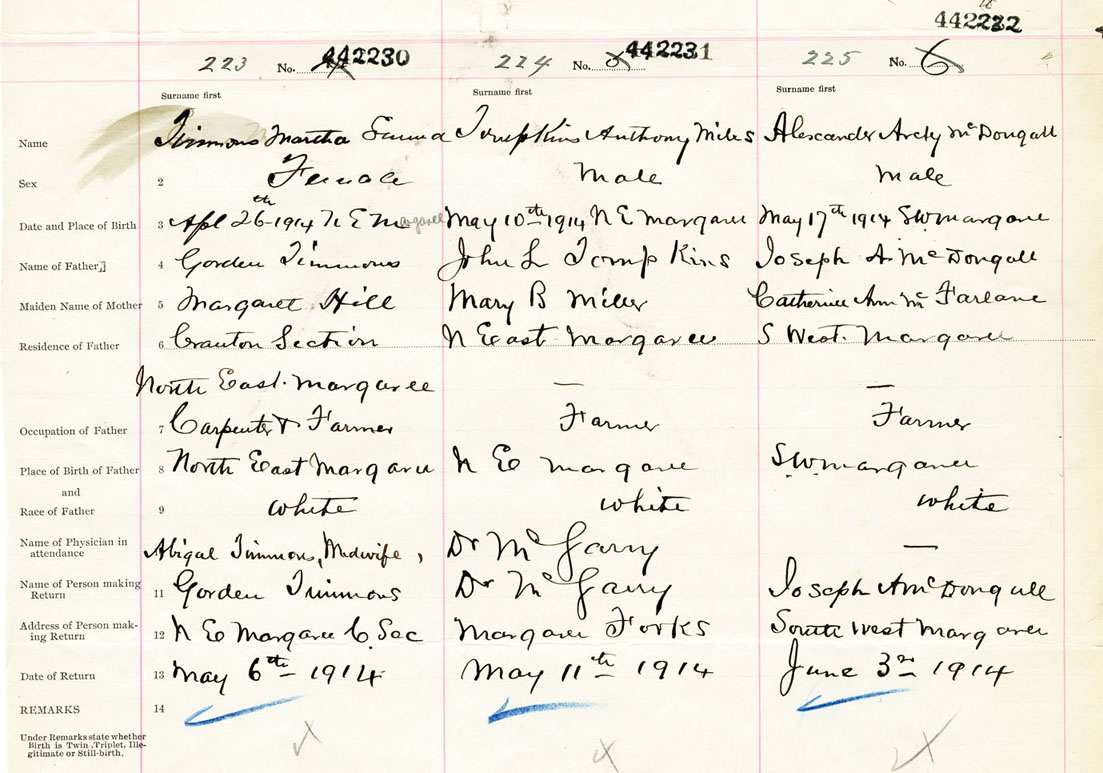 442232
223 No. 442230 224 No. 5 442231 225 No. 6
Surname first Surname first Surname first
Name Timmons Martha Emma Tompkins Anthony Miles Alexander Archy McDougall
Sex 2 Female Male Male
Date and Place of Birth 3 Apl 26th 1914 N E Margaree May 10th 1914 N E Margaree May 17th 1914 S W Margaree
Name of Father 4 Gorden Timmons John L Tompkins Joseph A. McDougall
Maiden Name of Mother 5 Margaret Hill Mary B Miller Catherine Ann McFarlane
Residence of Father 6 Cranton Section N East Margaree S West. Margaree
North East. Margaree — —
Occupation of Father 7 Carpenter & Farmer Farmer Farmer
Place of Birth of Father 8 North East Margaree N E Margaree S.W. Margaree
and
Race of Father 9 White White White
Name of Physician in attendance Abigal Timmons, Midwife, Dr McGarry —
Name of Person making Return 11 Gorden Timmons Dr McGarry Joseph A McDougall
Address of Person making Return 12 N E Margaree C. Sec Margaree Forks South West Margaree
Date of Return 13 May 6th 1914 May 11th 1914 June 3rd 1914
REMARKS 14
Under Remarks state whether
Birth is Twin, Triplet, Ille-
gitimate or Still-birth.